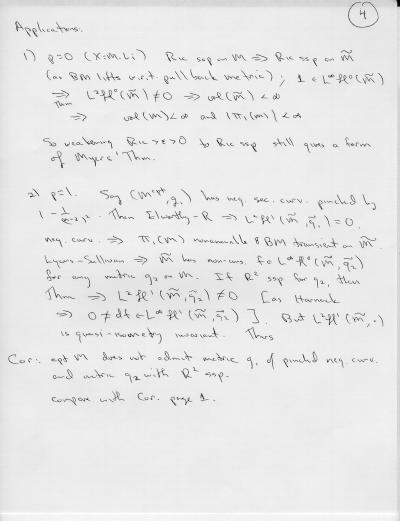 4
Applications:
1) p=0 (X-M. Li) Ric ssp on M ⇒ Ric ssp on M̃
(as BM lifts w.r.t. pull back metric); 1 ∈ L^∞ℋ⁰(M̃)
⇒ L²ℋ⁰(M̃) ≠ 0 ⇒ vol(M̃) < ∞
Thm
⇒ vol(M) < ∞ and |π₁(M)| < ∞
So weakening Ric > ε > 0 to Ric ssp still gives a form
of Myers' Thm.
2) p=1. Say (M^cpt, g₁) has neg. sec. curv. pinched by
Then Elworthy-R ⇒ L²ℋ¹(M̃, g̃₁) = 0.
neg. curv. ⇒ π₁(M) nonamenable & BM transient on M̃
Lyons-Sullivan ⇒ M̃ has non-cons. f ∈ L^∞ℋ⁰(M̃, g̃₂)
for any metric g₂ on M. If R² ssp for g₂, then
Thm ⇒ L²ℋ¹(M̃, g̃₂) ≠ 0 [as Harnack
⇒ 0 ≠ df ∈ L^∞ℋ¹(M̃, g̃₂) ]. But L²ℋ¹(M̃, ·)
is quasi-isometry invariant. Thus
Cor: cpt M does not admit metric g₁ of pinched neg. curv.
and metric g₂ with R² ssp.
compare with Cor. page 1.